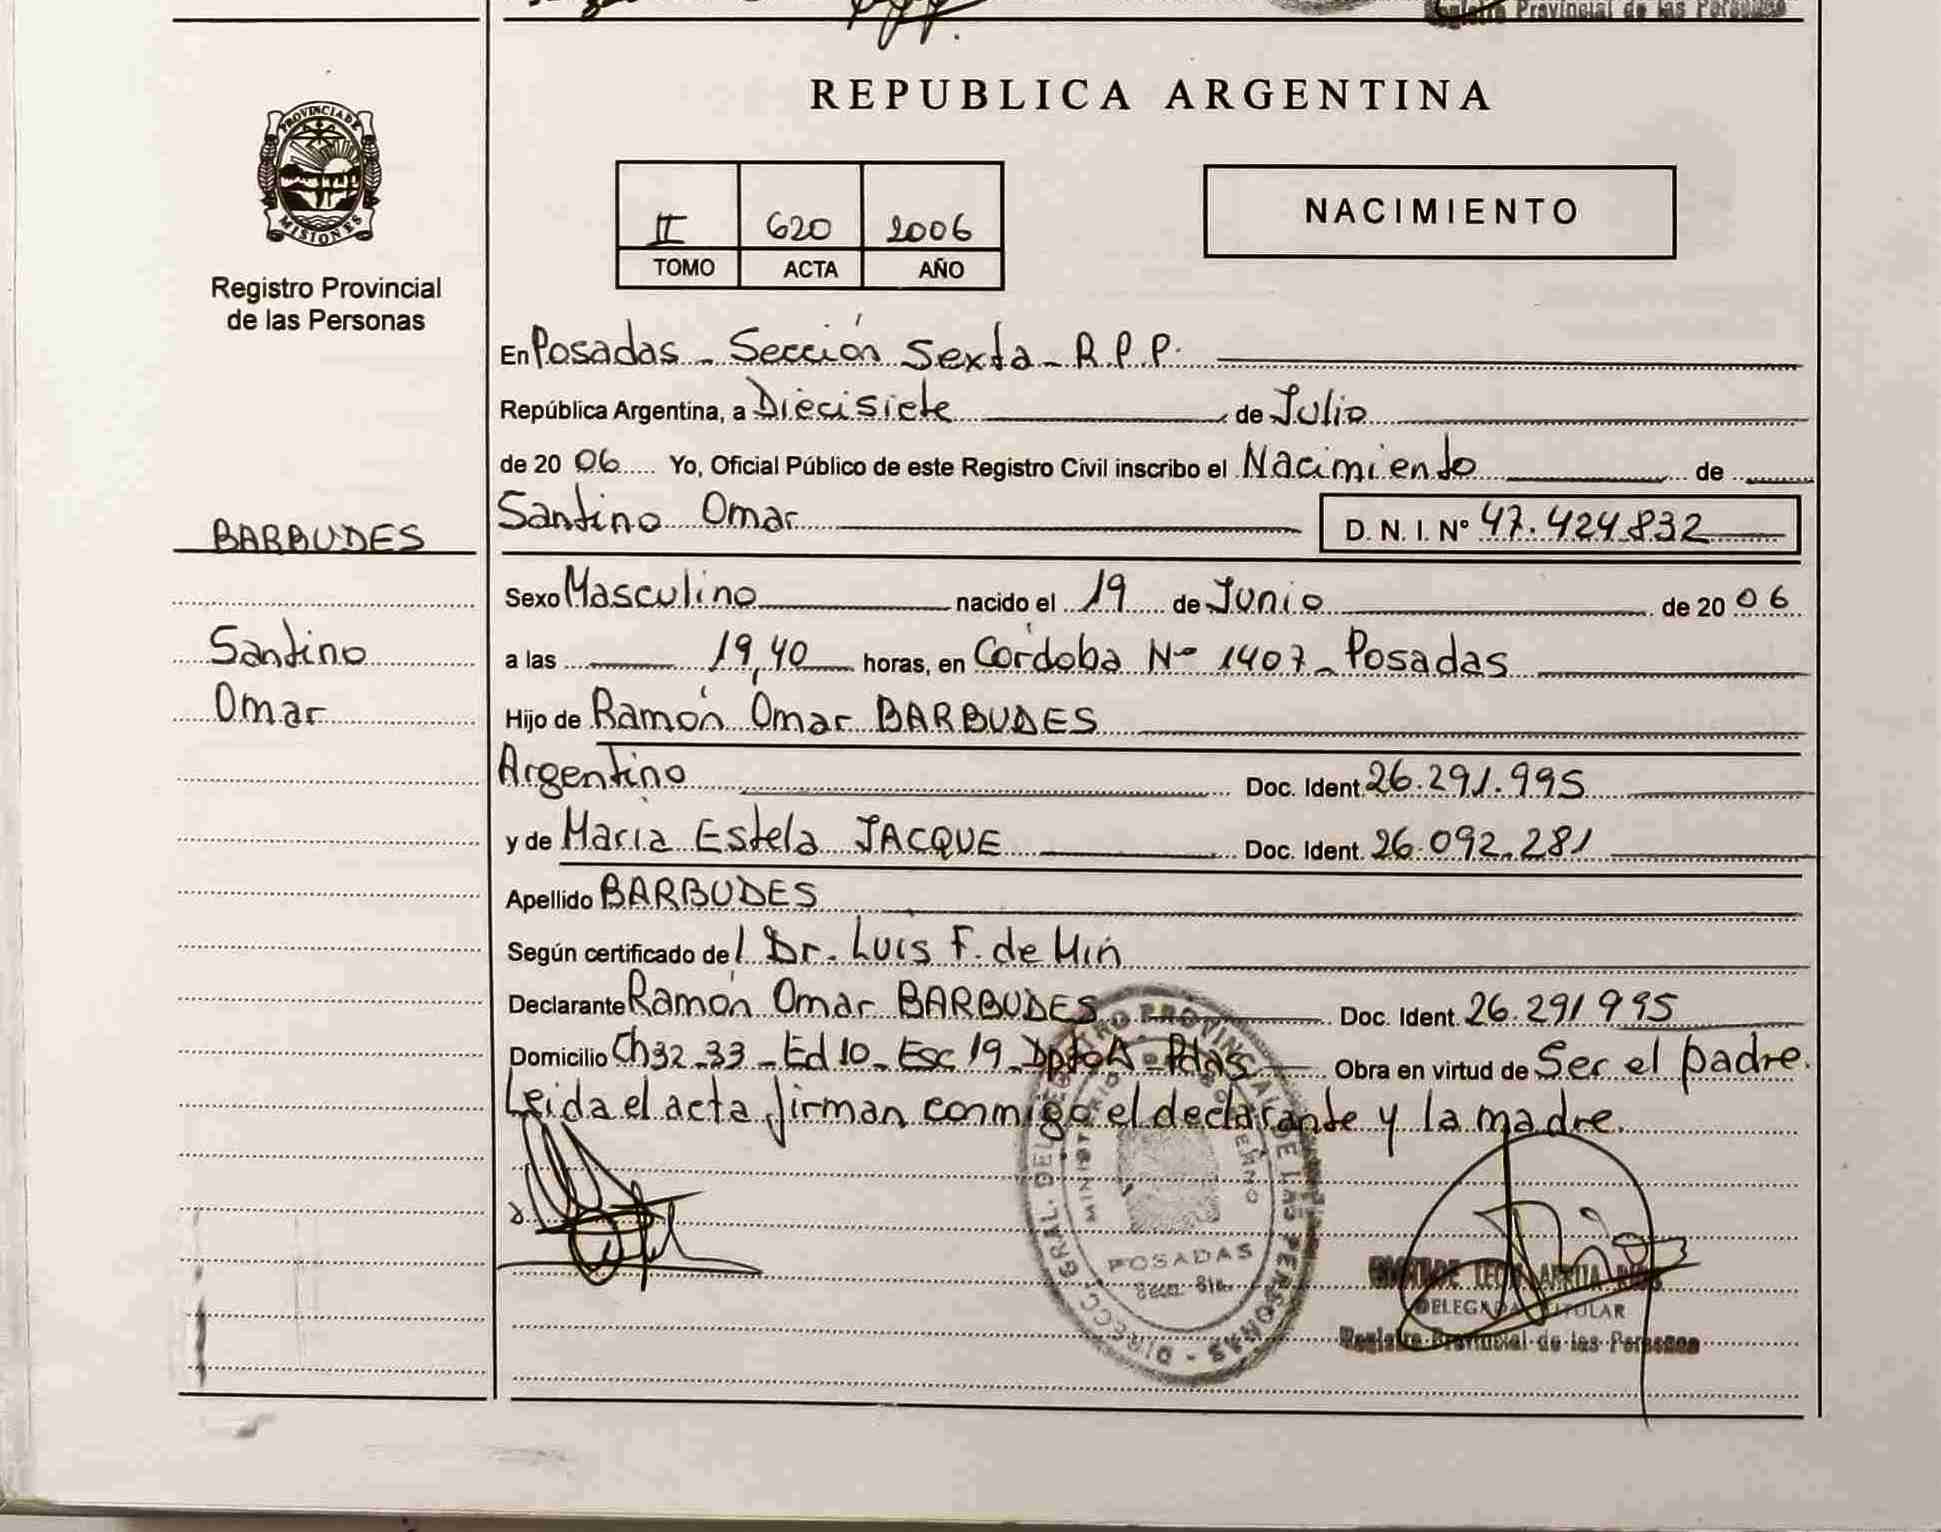 Registro Provincial de las Personas
PROVINCIA DE
MISIONES
Registro Provincial
de las Personas
REPUBLICA ARGENTINA
II 620 2006
TOMO ACTA AÑO
NACIMIENTO
En Posadas - Sección Sexta - R.P.P.
República Argentina, a Diecisiete de Julio
de 20 06 Yo, Oficial Público de este Registro Civil inscribo el Nacimiento de
BARBUDES
Santino Omar D. N. I. Nº 47.424.832
Sexo Masculino nacido el 19 de Junio de 20 06
Santino
a las 19,40 horas, en Córdoba Nº 1407 - Posadas
Omar
Hijo de Ramón Omar BARBUDES
Argentino Doc. Ident. 26.291.995
y de Maria Estela JACQUE Doc. Ident. 26.092.281
Apellido BARBUDES
Según certificado del Dr. Luis F. de Min
Declarante Ramón Omar BARBUDES Doc. Ident. 26.291 995
Domicilio Ch 32-33 - Ed 10 - Esc 19 - Dpto A - Pdas Obra en virtud de Ser el padre.
Leida el acta firman conmigo el declarante y la madre.
DIRECC. GRAL. DEL REGISTRO PROVINCIAL DE LAS PERSONAS
MINISTERIO DE GOBIERNO
POSADAS
Secc. 6ta.
DELEGADA TITULAR
Registro Provincial de las Personas